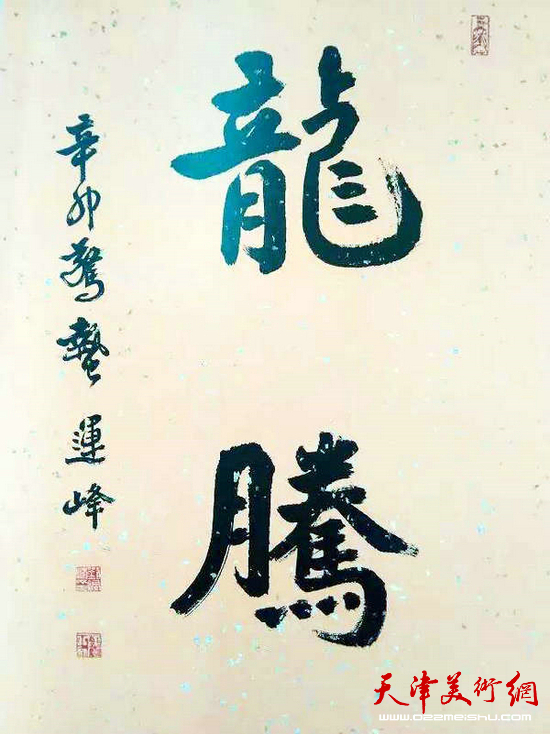 龍騰
辛卯驚蟄運峰
天津美術網
www.022meishu.com